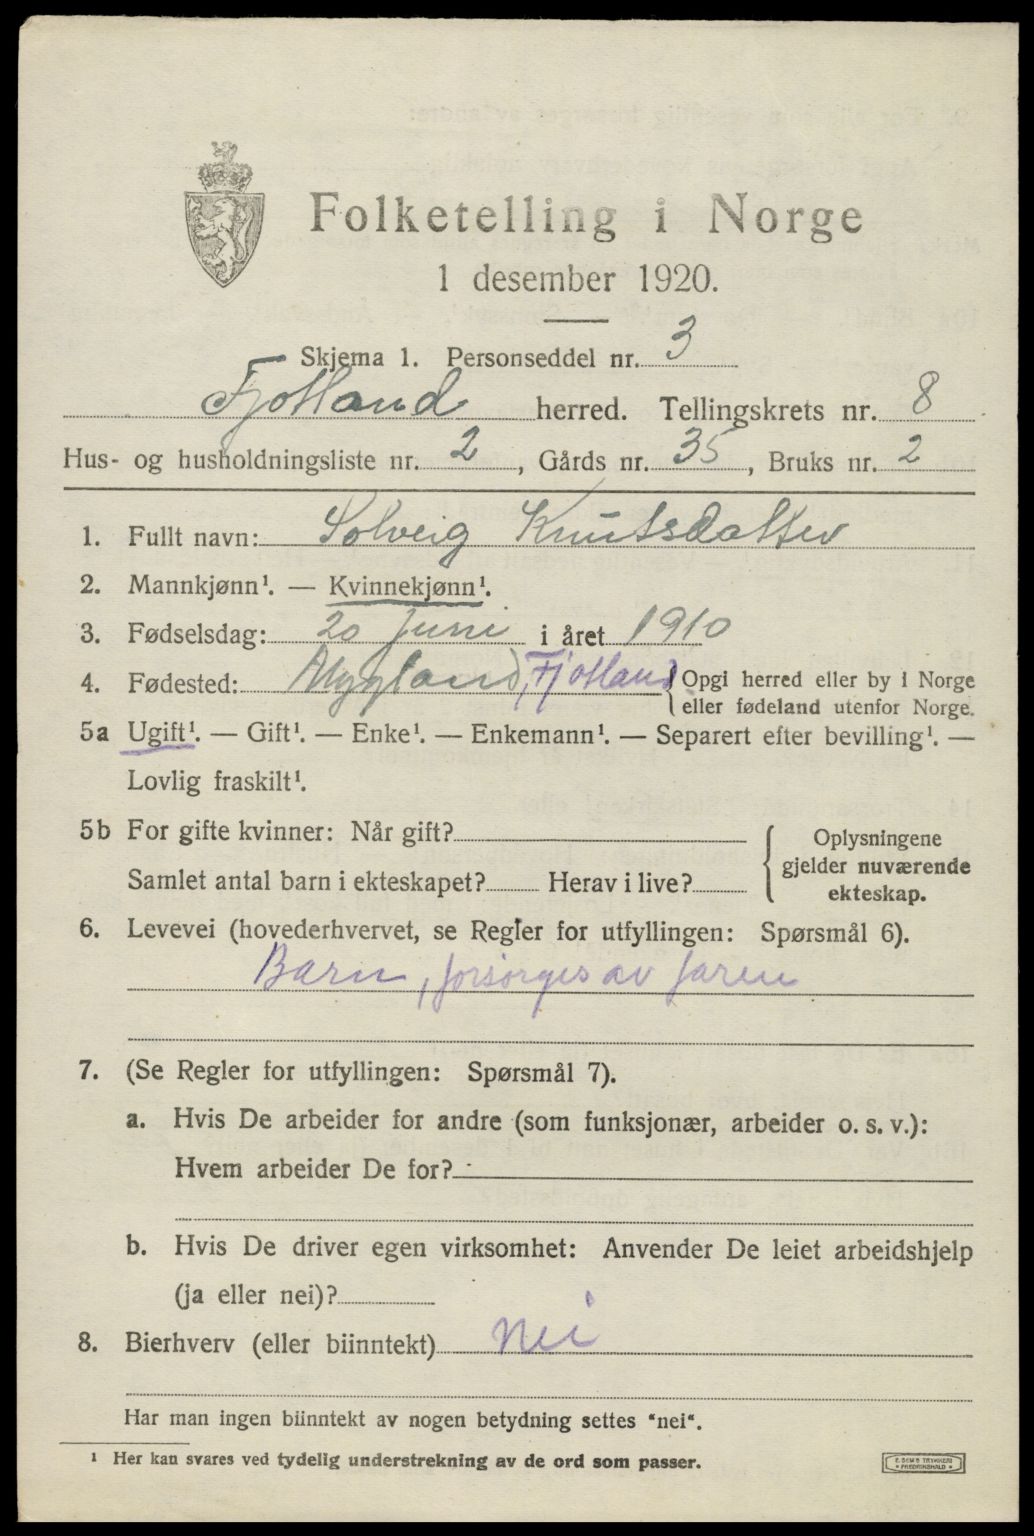 Folketelling i Norge
1 desember 1920.
Skjema 1. Personseddel nr. 3
Fjotland herred. Tellingskrets nr. 8
Hus- og husholdningsliste nr. 2, Gårds nr. 35, Bruks nr. 2
1. Fullt navn: Solveig Knutsdatter
2. Mannkjønn¹. — Kvinnekjønn¹.
3. Fødselsdag: 20 juni i året 1910
4. Fødested: Mygland, Fjotland { Opgi herred eller by i Norge
eller fødeland utenfor Norge.
5a Ugift¹. — Gift¹. — Enke¹. — Enkemann¹. — Separert efter bevilling¹. —
Lovlig fraskilt¹.
5b For gifte kvinner: Når gift?
Samlet antal barn i ekteskapet? Herav i live?
{ Oplysningene
gjelder nuværende
ekteskap.
6. Levevei (hovederhvervet, se Regler for utfyllingen: Spørsmål 6).
Barn, forsørges av faren
7. (Se Regler for utfyllingen: Spørsmål 7).
a. Hvis De arbeider for andre (som funksjonær, arbeider o. s. v.):
Hvem arbeider De for?
b. Hvis De driver egen virksomhet: Anvender De leiet arbeidshjelp
(ja eller nei)?
8. Bierhverv (eller biinntekt) nei
Har man ingen biinntekt av nogen betydning settes "nei".
¹ Her kan svares ved tydelig understrekning av de ord som passer.
E. SEM'S TRYKKERI
* FREDRIKSHALD *